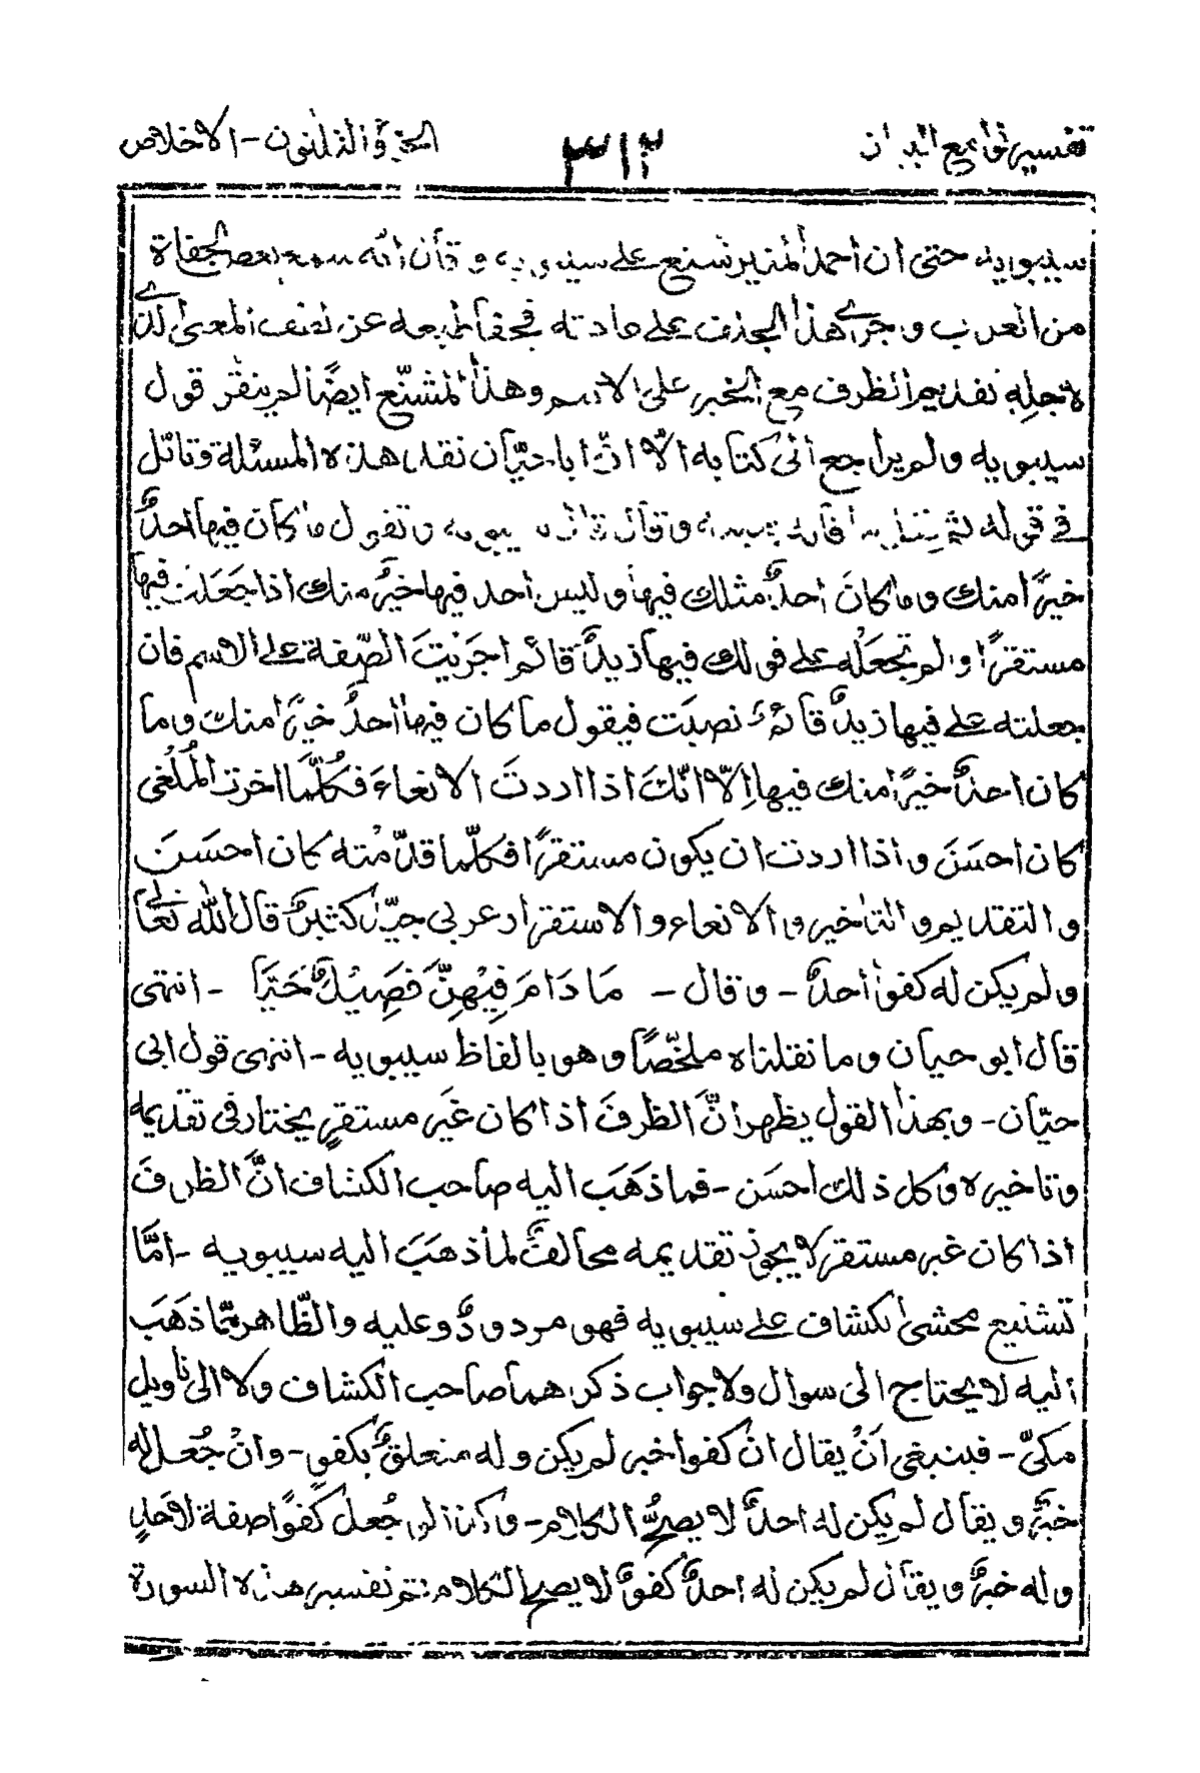 تفسير لوامع البيان ٣١٢ الجزؤ الثلثون - الاخلاص
سيبويه حتى ان احمد المنير شنع على سيبويه وقال انه سمع بعض الجفاة
من العرب وجرى هذا الجلف على عادته فجفا طبعه عن لطف المعنى الذى
لاجله تقديم الظرف مع الخبر على الاسم وهذا المشنّع ايضًا لم ينقر قول
سيبويه ولم يراجع الىٰ كتابه الّا انّ ابا حيّان نقل هذه المسئلة وقال
فى قوله وقال وتقول ما كان فيها احدٌ
خيرًا منك وما كانَ احدٌ مثلك فيها وليس احد فيها خيرٌ منك اذا جَعَلتَ فيها
مستقرًا ولم تجعَلْه على قولك فيها زيدٌ قائم اجرَيْتَ الصّفة على الاسم فان
جعلته على فيها زيدٌ قائمٌ نصبَت فيقول ما كان فيها احدٌ خيرًا منك وما
كان احدٌ خيرًا منك فيها اِلّا انّكَ اذا اردتَ الالغاءَ فكُلَّما اخرت المُلغى
كان احسَنَ واذا اردت ان يكون مستقرًا فكلّما قدّمْته كان احسَنَ
والتقديم والتاخير والالغاء والاستقرار عربى جيّدٌ كثيرٌ قال الله تعالى
ولم يكن له كفوًا احدٌ - وقال - مَا دَامَ فِيْهِنَّ فَصِيْلٌ حَيًّا - انتهى
قال ابو حيان وما نقلناه ملخّصًا وهو بالفاظ سيبويه - انتهى قول ابى
حيّان - وبهذا القول يظهر انَّ الظرفَ اذا كان غَير مستقرٍ يختار فى تقديمه
وتاخيره وكل ذلك احسَن - فما ذهَبَ اليه صاحب الكشاف انَّ الظرفَ
اذا كان غير مستقر لا يجوز تقديمه مخالفٌ لما ذهَبَ اليه سيبويه - امَّا
تشنيع محشى الكشاف على سيبويه فهو مردودٌ وعليه والظّاهر ممّا ذهَبَ
اليه لا يحتاج الى سوال ولا جواب ذكرهما صاحب الكشاف ولا الى تاويل
مكىّ - فينبغى اَنْ يقال انّ كفوا خبر لم يكن وله متعلقٌ بكفوٍ - وانْ جُعل له
خبرٌ ويقال لم يكن له احدٌ لا يصحُّ الكلام - وكذا لو جُعل كفوًا صفة لاحدٍ
وله خبرٌ ويقال لم يكن له احدٌ كفوٌ لا يصح الكلام تم تفسير هذه السورة